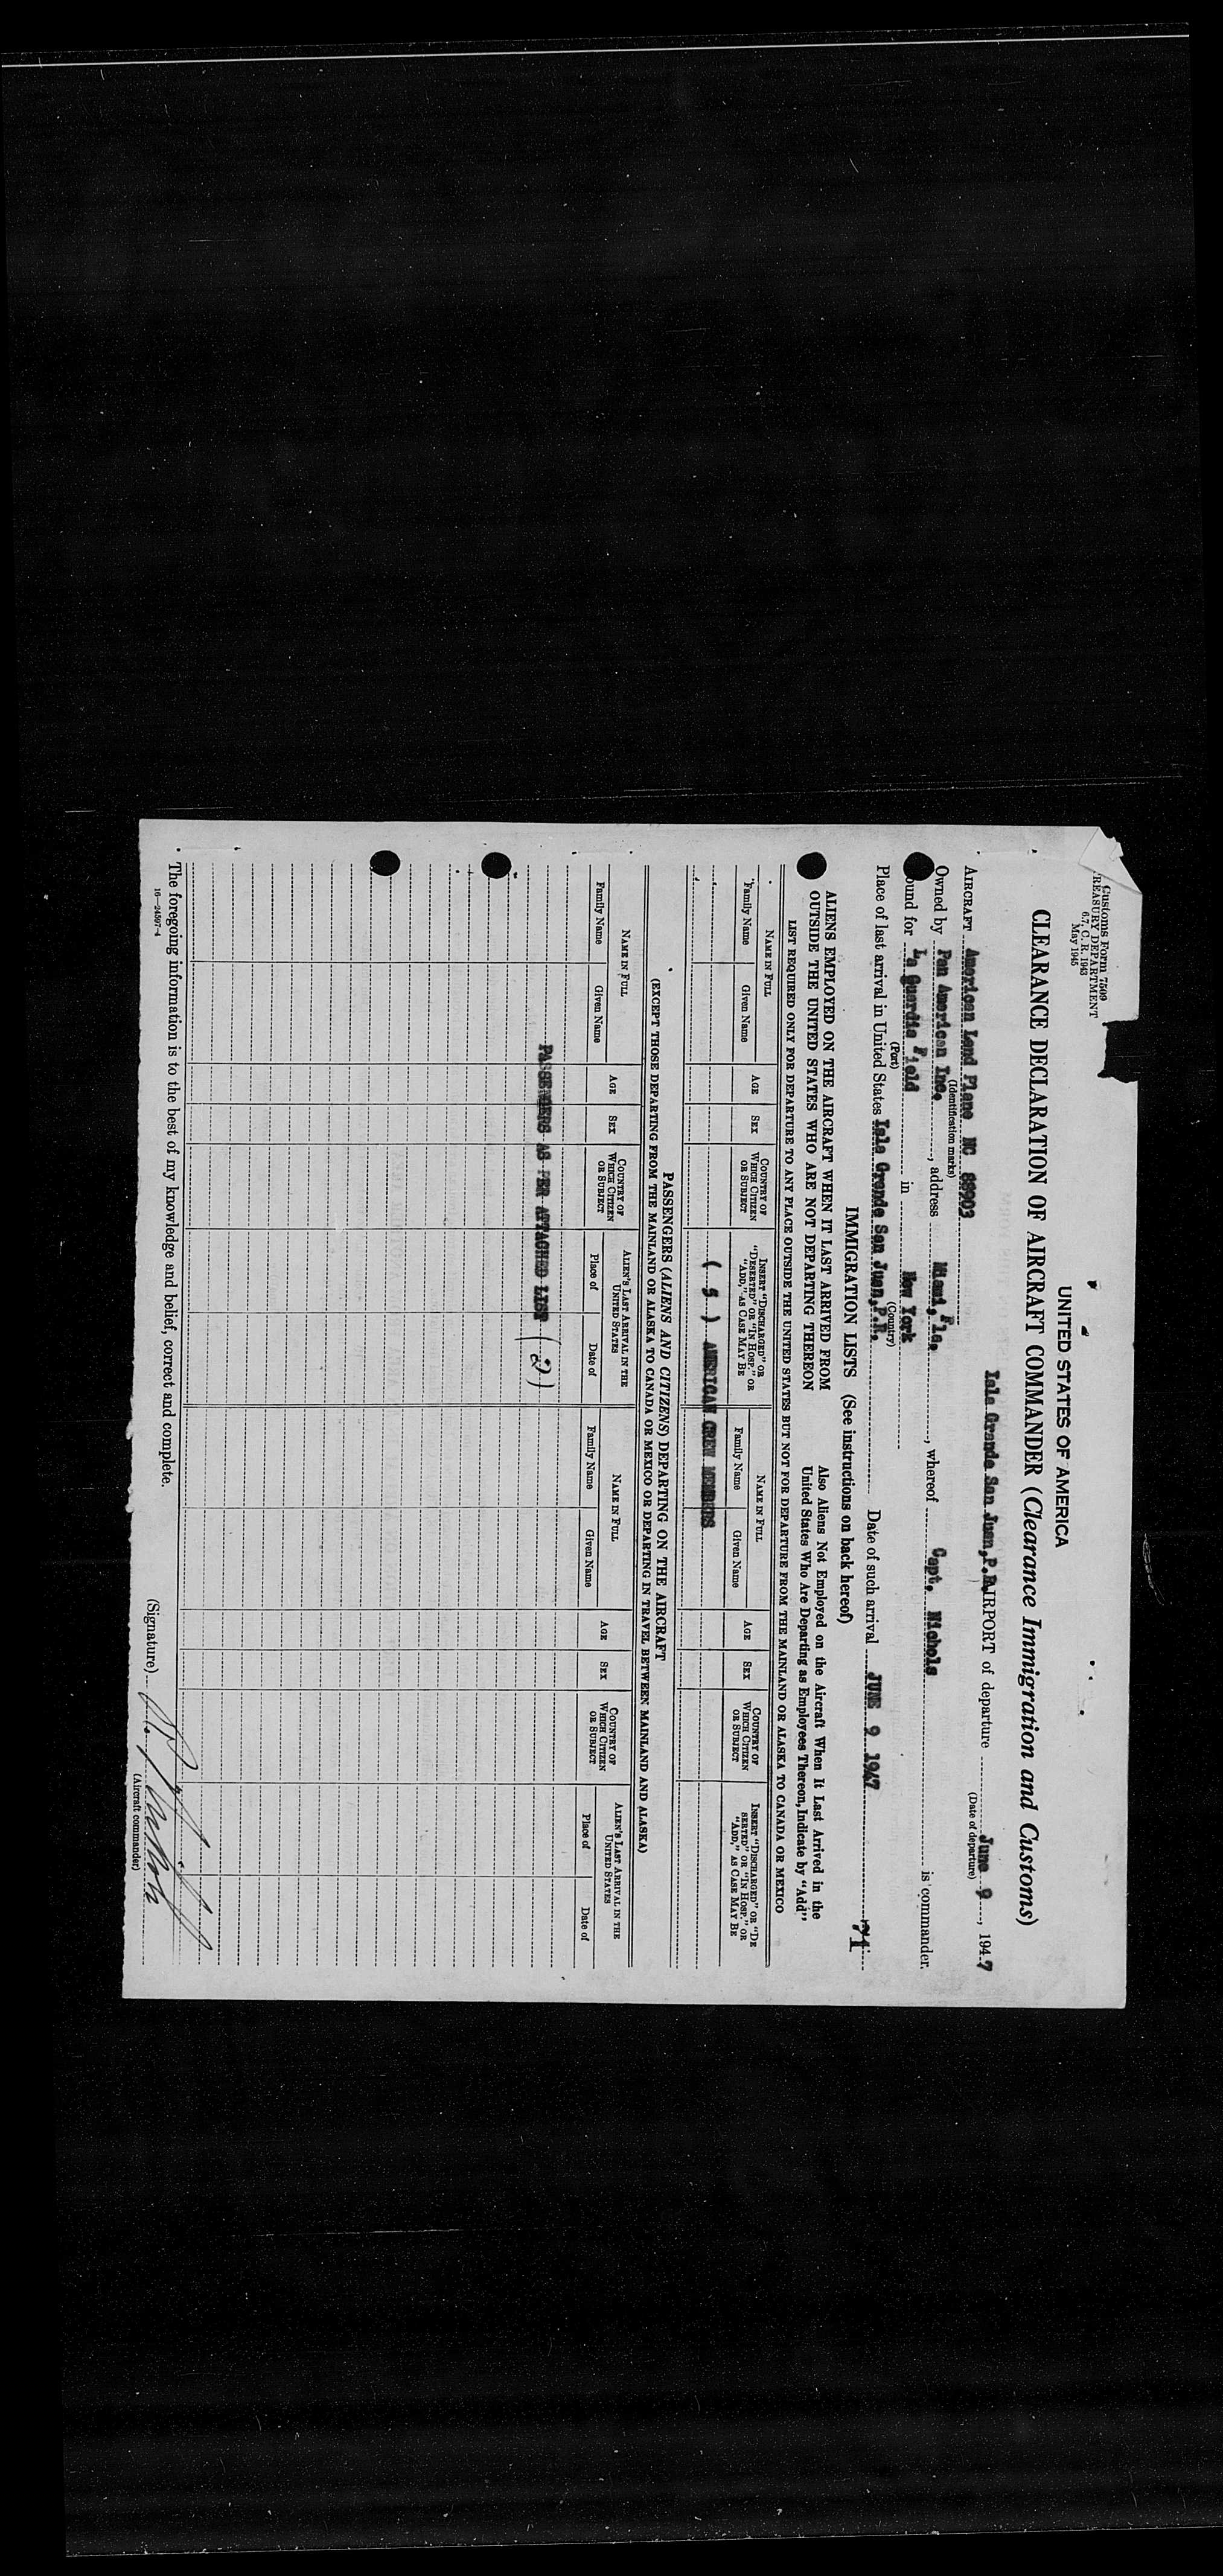 Customs Form 7509
TREASURY DEPARTMENT
6.7, C. R. 1943
May 1945
UNITED STATES OF AMERICA
CLEARANCE DECLARATION OF AIRCRAFT COMMANDER (Clearance Immigration and Customs)
Isla Grande San Juan, P.R. AIRPORT of departure June 9, 1947
(Date of departure)
AIRCRAFT American Land Plane NC 88903
(Identification marks)
Owned by Pan American Inc., address Miami, Fla., whereof Capt. Nichols is commander.
ound for La Guardia Field in New York
(Port) (Country)
Place of last arrival in United States Isla Grande San Juan, P.R. Date of such arrival JUNE 9 1947
71
IMMIGRATION LISTS (See instructions on back hereof)
ALIENS EMPLOYED ON THE AIRCRAFT WHEN IT LAST ARRIVED FROM OUTSIDE THE UNITED STATES WHO ARE NOT DEPARTING THEREON
Also Aliens Not Employed on the Aircraft When It Last Arrived in the United States Who Are Departing as Employees Thereon, Indicate by "Add"
LIST REQUIRED ONLY FOR DEPARTURE TO ANY PLACE OUTSIDE THE UNITED STATES BUT NOT FOR DEPARTURE FROM THE MAINLAND OR ALASKA TO CANADA OR MEXICO
NAME IN FULL
Family Name Given Name
AGE SEX COUNTRY OF WHICH CITIZEN OR SUBJECT
INSERT "DISCHARGED" OR "DESERTED" OR "IN HOSP." OR "ADD," AS CASE MAY BE
NAME IN FULL
Family Name Given Name
AGE SEX COUNTRY OF WHICH CITIZEN OR SUBJECT
INSERT "DISCHARGED" OR "DESERTED" OR "IN HOSP." OR "ADD," AS CASE MAY BE
( 5 ) AMERICAN CREW MEMBERS
PASSENGERS (ALIENS AND CITIZENS) DEPARTING ON THE AIRCRAFT
(EXCEPT THOSE DEPARTING FROM THE MAINLAND OR ALASKA TO CANADA OR MEXICO OR DEPARTING IN TRAVEL BETWEEN MAINLAND AND ALASKA)
NAME IN FULL
Family Name Given Name
AGE SEX COUNTRY OF WHICH CITIZEN OR SUBJECT
ALIEN'S LAST ARRIVAL IN THE UNITED STATES
Place of Date of
NAME IN FULL
Family Name Given Name
AGE SEX COUNTRY OF WHICH CITIZEN OR SUBJECT
ALIEN'S LAST ARRIVAL IN THE UNITED STATES
Place of Date of
PASSENGERS AS PER ATTACHED LIST (2)
The foregoing information is to the best of my knowledge and belief, correct and complete.
(Signature)
(Aircraft commander)
16—24597-4